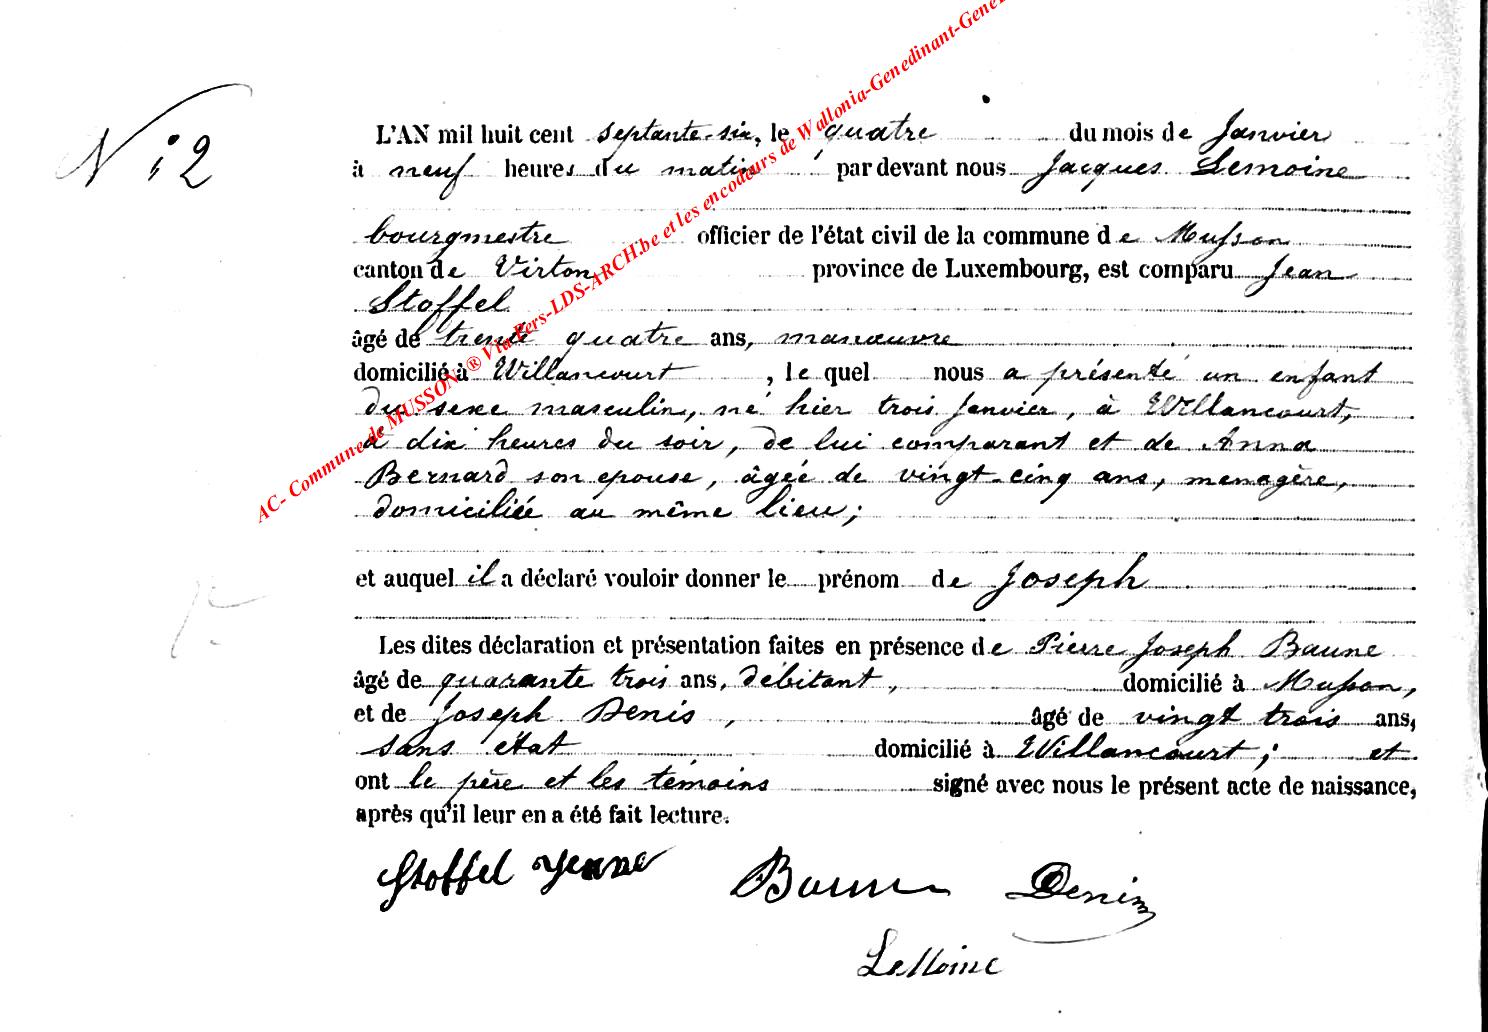 N° 2
L'AN mil huit cent septante-six, le quatre du mois de Janvier
à neuf heures du matin par devant nous Jacques Lemoine
bourgmestre officier de l'état civil de la commune de Musson
canton de Virton province de Luxembourg, est comparu Jean
Stoffel
âgé de trente quatre ans, manœuvre
domicilié à Willancourt, le quel nous a présenté un enfant
du sexe masculin, né hier trois Janvier, à Willancourt,
à dix heures du soir, de lui comparant et de Anna
Bernard son epouse, âgée de vingt-cinq ans, menagère,
domiciliée au même lieu;
et auquel il a déclaré vouloir donner le prénom de Joseph
Les dites déclaration et présentation faites en présence de Pierre Joseph Baune
âgé de quarante trois ans, débitant, domicilié à Musson,
et de Joseph Denis, âgé de vingt trois ans,
sans état domicilié à Willancourt; et
ont le père et les témoins signé avec nous le présent acte de naissance,
après qu'il leur en a été fait lecture.
Stoffel Baune Denis
Lemoine
AC- Commune de MUSSON ® Via Pers-LDS-ARCH.be et les encodeurs de Wallonia-Genedinant-Gene